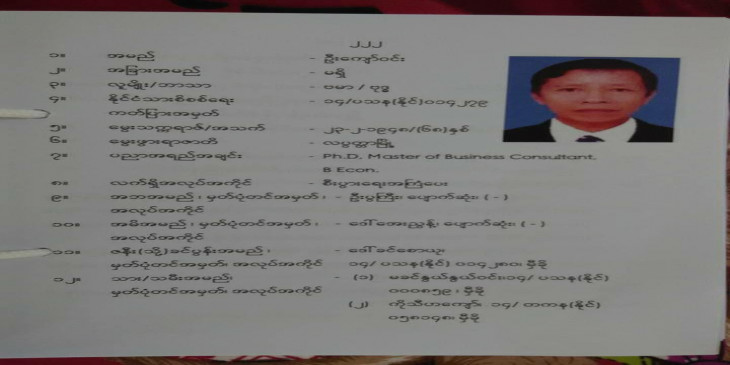 ၂၂၂
၁။ အမည် - ဦးကျော်ဝင်း
၂။ အခြားအမည် - မရှိ
၃။ လူမျိုး/ဘာသာ - ဗမာ / ဗုဒ္ဓ
၄။ နိုင်ငံသားစိစစ်ရေး - ၁၄/ပသန(နိုင်)၀၁၄၂၇၉
ကတ်ပြားအမှတ်
၅။ မွေးသက္ကရာဇ်/အသက် - ၂၃-၂-၁၉၄၈/(၆၈)နှစ်
၆။ မွေးဖွားရာဇာတိ - လပွတ္တာမြို့
၇။ ပညာအရည်အချင်း - Ph.D, Master of Business Consultant,
B Econ.
၈။ လက်ရှိအလုပ်အကိုင် - စီးပွားရေးအကြံပေး
၉။ အဘအမည်၊ မှတ်ပုံတင်အမှတ်၊ - ဦးပွကြီး၊ ပျောက်ဆုံး၊ ( - )
အလုပ်အကိုင်
၁၀။ အမိအမည်၊ မှတ်ပုံတင်အမှတ်၊ - ဒေါ်အေးညွန့်၊ ပျောက်ဆုံး၊ ( - )
အလုပ်အကိုင်
၁၁။ ဇနီး(သို့)ခင်ပွန်းအမည်၊ - ဒေါ်ခင်စောယု၊
မှတ်ပုံတင်အမှတ်၊ အလုပ်အကိုင် ၁၄/ ပသန(နိုင်) ၀၁၄၂၈၀၊ မှီခို
၁၂။ သား/သမီးအမည်၊ - (၁) မခင်နွယ်နွယ်ဝင်း၊၁၄/ ပသန(နိုင်)
မှတ်ပုံတင်အမှတ်၊ အလုပ်အကိုင် ၀၀၀၈၅၉၊ မှီခို
(၂) ကိုသီဟကျော်၊ ၁၄/ တကန(နိုင်)
၀၅၈၁၄၈၊ မှီခို